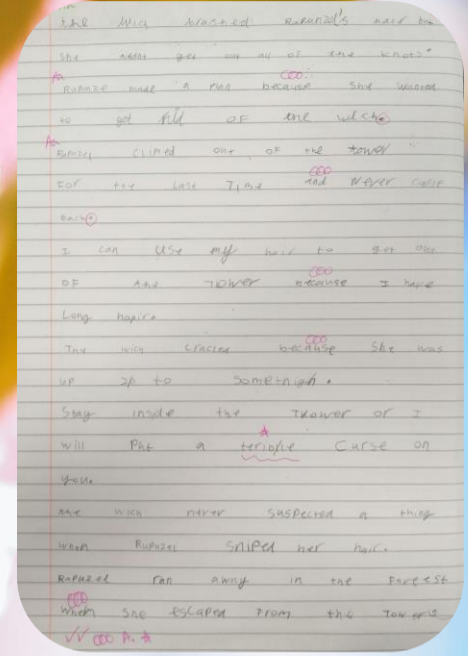 the Wich brushed Rapunzel's hair but
She get out all of the knots.
Rapunze made a plan because She wanted
to get Rid OF the witch.
climed out of the tower
For the Last Time and Never came
back.
I can USe my hair to get out
OF the Tower because I have
Long hair.
The wich because She was
UP to Somethigh.
Stay inside the Tower or I
will Put a terible Curse on
you.
the wich never Suspected a thing
When Rupuzel SniPed her hair.
Rapuzel ran away in the Forest
When She escaped From the Tower.
A.